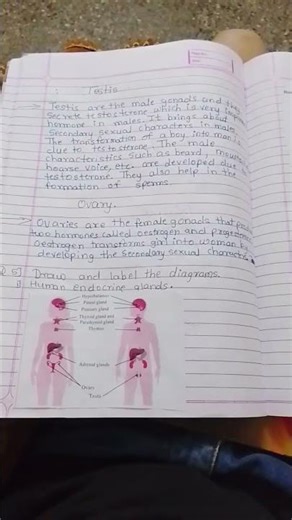 Testis
→ Testis are the male gonads and they
secrete testosterone which is very
hormone in males. It brings about
secondary sexual characters in males
The transformation of a boy into man is
due to testosterone. The male
characteristics such as beard,
hoarse voice, etc. are developed due
testosterone. They also help in the
formation of sperms.
Ovary.
→ Ovaries are the female gonads that
two hormones called oestrogen and
oestrogen transforms girl into woman by
developing the secondary sexual
Q.5) Draw and label the diagrams.
i) Human endocrine glands.
Hypothalamus
Pineal gland
Pituitary gland
Thyroid gland and
Parathyroid gland
Thymus
Adrenal glands
Ovary
Testis